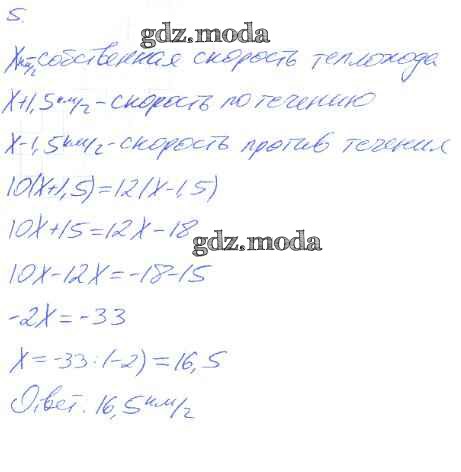 5.
gdz.moda
x км/ч - собственная скорость теплохода
x+1,5 км/ч - скорость по течению
x-1,5 км/ч - скорость против течения
10(x+1,5)=12(x-1,5)
10x+15=12x-18
gdz.moda
10x-12x=-18-15
-2x=-33
x=-33:(-2)=16,5
Ответ. 16,5 км/ч